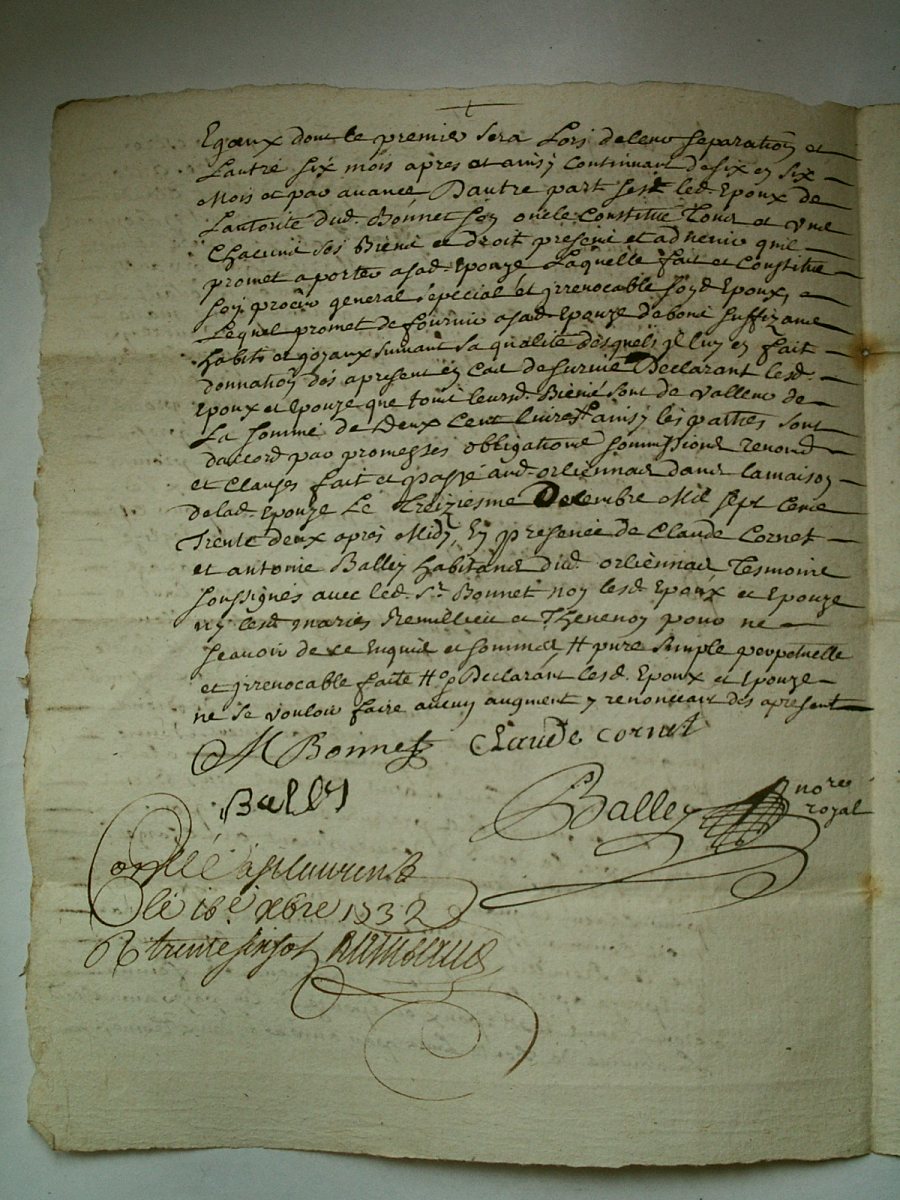 Egaux dont le premier sera Lors deleur separation et
Lautre six mois apres et ainsy continuant de six en six
Mois et par avance Dautre part led. Epoux de
Lautorité dud. Bonnet son oncle Constitue Tous et Une
Chacuns ses Biens et droit present et advenir quil
promet aporter asad. Epouze Laquelle fait et Constitue
son procur general special et irrevocable sond Epoux,
Lequel promet de fournir asad. Epouze debons suffizans
habits et joyaux suivant sa qualité desquels il luy en fait
donnation des apresent en Cas de survie Declarant lesd.
Epoux et Epouze que tous leursd. Biens sont de valleur de
La somme de Deux Cent Livres ainsy les parties sont
daccord par promesses obligations sommissions renond
et Clauses fait et passé aud. orliennas dans lamaison
delad. Epouze Le Treiziesme Decembre Mil sept Cens
Trente deux apres Midy, En presence de Claude Cornet
et antoine Balley habitans dud. orliennas Tesmoins
soussignés avec led. Sr. Bonnet non lesd. Epoux et Epouze
ny lesd. maries Remillieu et Thevenon pour ne
scavoir de ce Enquis et sommés # pure simple perpetuelle
et irrevocable faite # Declarant lesd. Epoux et Epouze
ne se vouloir faire aucun augment y renonceant des apresent
M Bonnet Claude cornet
Bally
Balley nore
royal
Conllé a st laurens
le 18e xbre 1732
R trente six sols